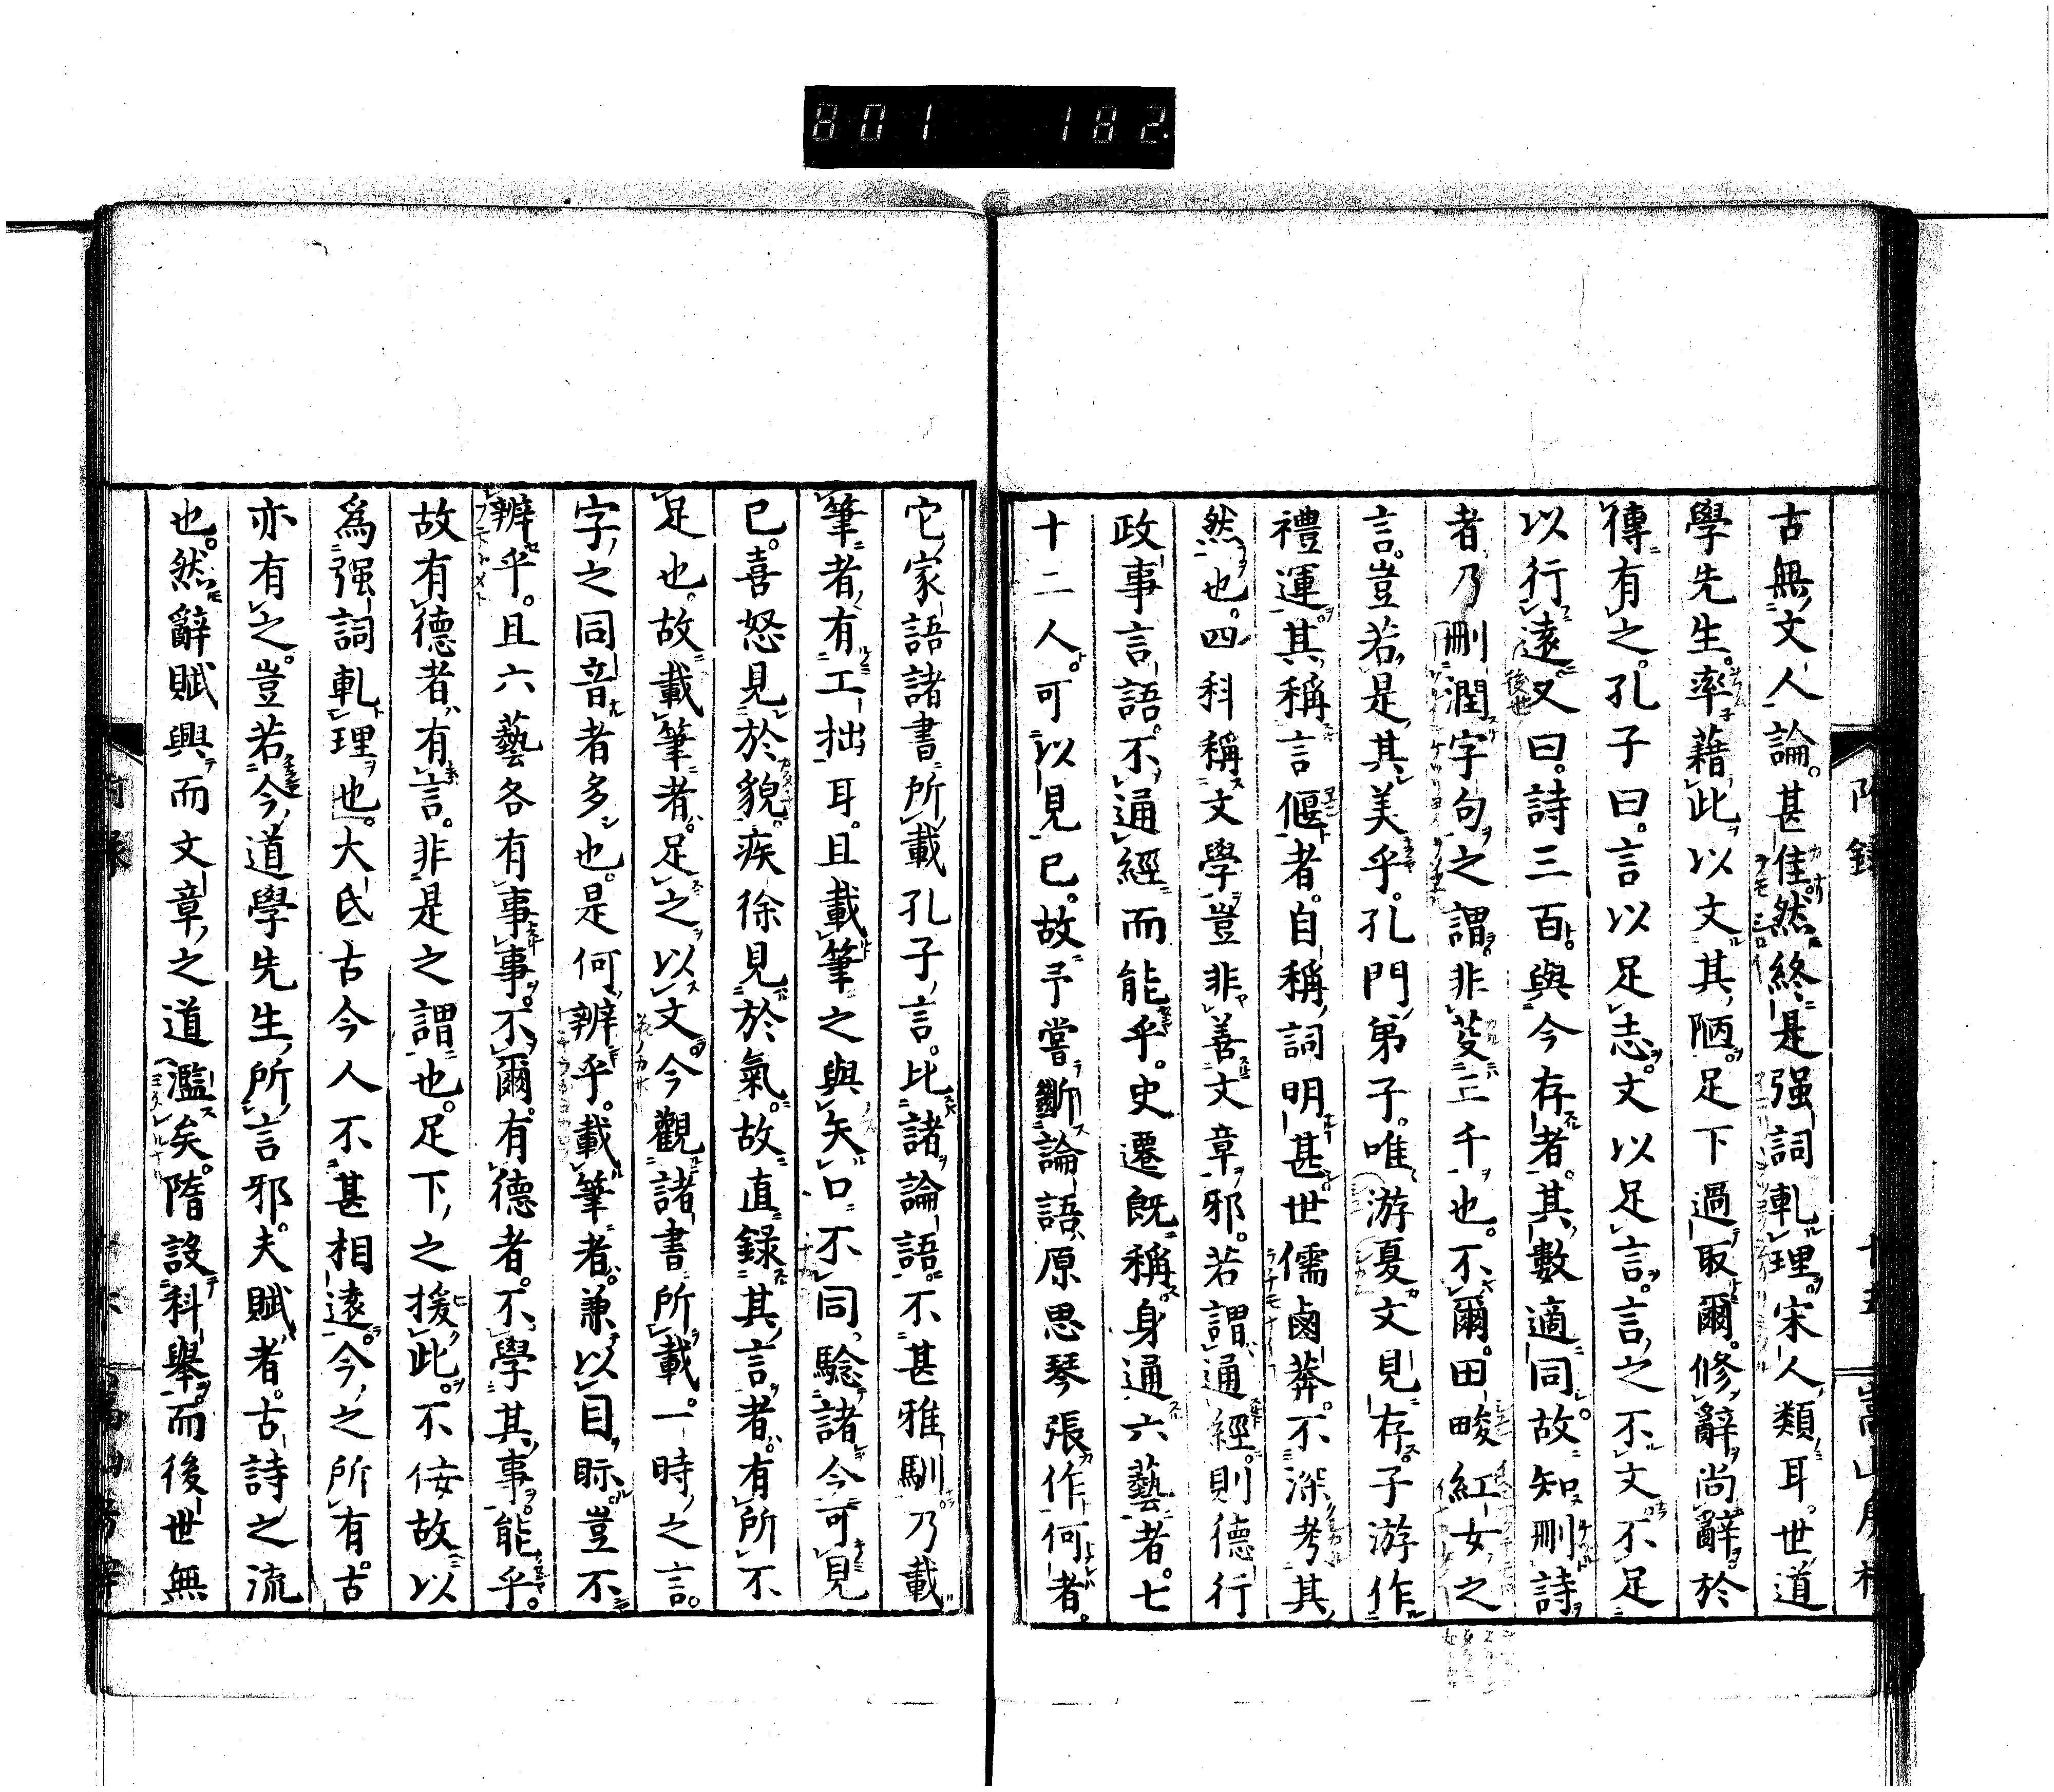 801 182
附錄
古無文人論。甚佳。然終是强詞軋理。宋人類耳。世道
學先生。率藉此以文其陋。足下過取爾。修辭尚辭。於
傳有之。孔子曰。言以足志。文以足言。言之不文。不足
以行遠。又曰。詩三百。與今存者。其數適同。故知刪詩
者。乃刪潤字句之謂。非芟三千也。不爾。田畯紅女之
言。豈若是其美乎。孔門弟子。唯游夏文見存。子游作
禮運。其稱言偃者。自稱詞明甚。世儒鹵莽。不深考其
然也。四科稱文學。豈非善文章邪。若謂通經。則德行
政事言語。不通經而能乎。史遷既稱身通六藝者。七
十二人。可以見已。故予嘗斷論語原思琴張作。何者。
它家語諸書所載孔子言。比諸論語。不甚雅馴。乃載
筆者有工拙耳。且載筆之與矢口不同。驗諸今可見
已。喜怒見於貌。疾徐見於氣。故直錄其言者。有所不
足也。故載筆者。足之以文。今觀諸書所載。一時之言。
字之同音者多也。是何辨乎。載筆者。兼以目眎。豈不
辨乎。且六藝各有事事。不爾。有德者。不學其事。能乎。
故有德者有言。非是之謂也。足下之援此。不佞故以
爲强詞軋理也。大氐古今人不甚相遠。今之所有。古
亦有之。豈若今道學先生所言邪。夫賦者。古詩之流
也。然辭賦興而文章之道濫矣。隋設科舉。而後世無